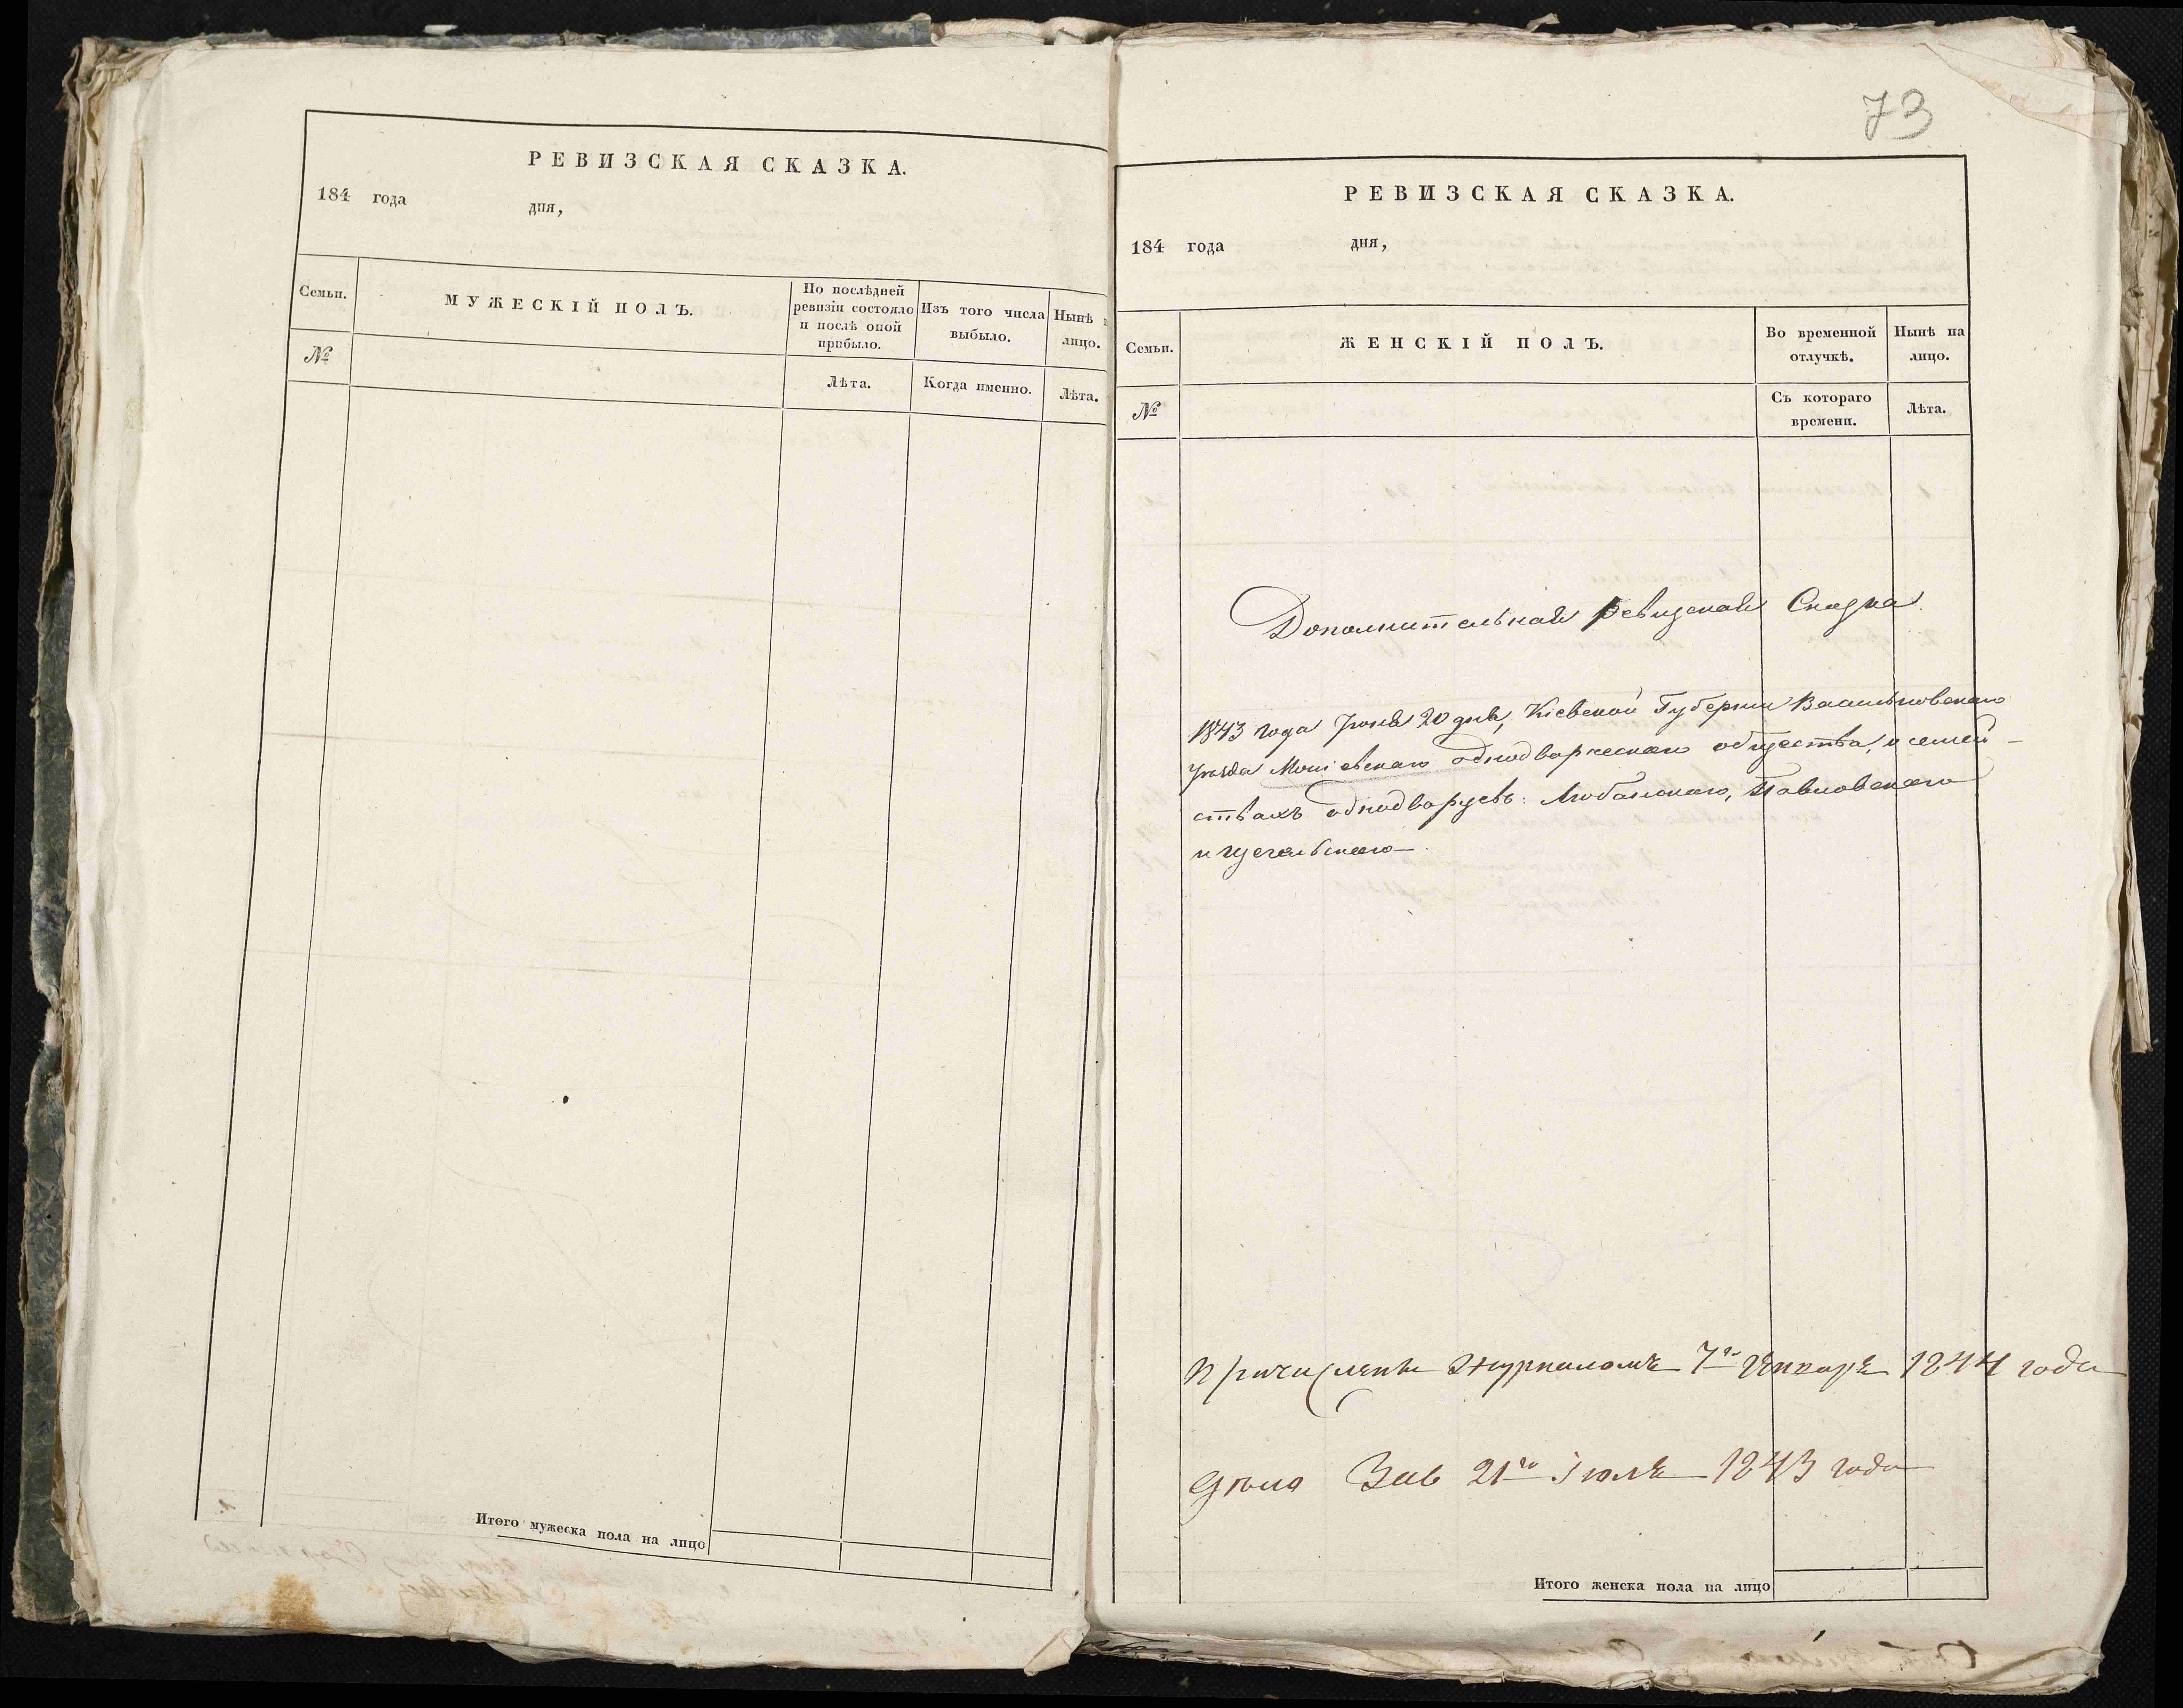 РЕВИЗСКАЯ СКАЗКА.
184 года дня,
Семьи.
№
МУЖЕСКІЙ ПОЛЪ.
По послѣдней
ревизіи состояло
и послѣ оной
прибыло.
Лѣта.
Изъ того числа
выбыло.
Когда именно.
Нынѣ
лицо.
Лѣта.
Итого мужеска пола на лицо
73
РЕВИЗСКАЯ СКАЗКА.
184 года дня,
Семьи.
№
ЖЕНСКІЙ ПОЛЪ.
Во временной
отлучкѣ.
Съ котораго
времени.
Нынѣ на
лицо.
Лѣта.
Дополнительная ревизская Сказка.
1843 года Іюня 20 дня, Кіевской Губерніи Васильковскаго
уѣзда однодворческаго общества, о семей-
ствахъ однодворцевъ: Любанскаго, Павловскаго
и
Причислены Журналомъ 7го Генваря 1844 года
Дѣло Зав 21го Іюля 1843 года
Итого женска пола на лицо